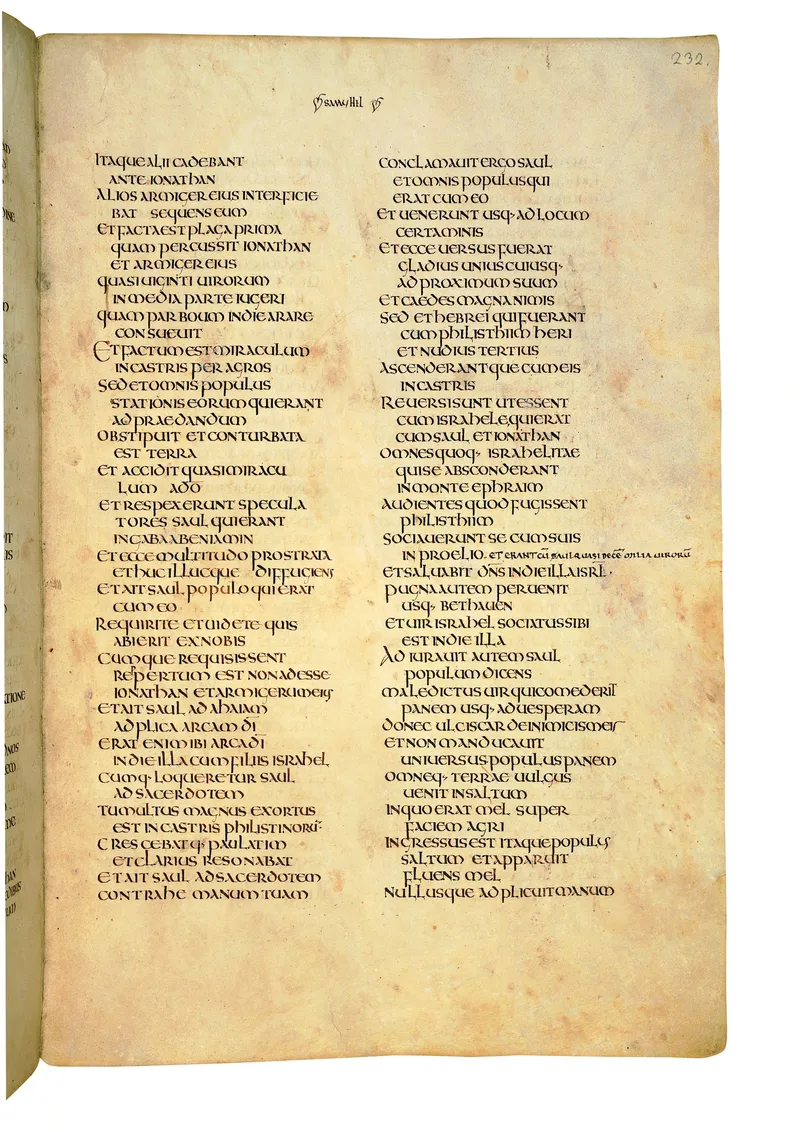 232.
SAMUHIL
ITAQUE ALII CADEBANT
ANTE IONATHAN
ALIOS ARMIGER EIUS INTERFICIE
BAT SEQUENS EUM
ET FACTA EST PLAGA PRIMA
QUAM PERCUSSIT IONATHAN
ET ARMIGER EIUS
QUASI UIGINTI UIRORUM
IN MEDIA PARTE IUGERI
QUAM PAR BOUM IN DIE ARARE
CONSUEUIT
ET FACTUM EST MIRACULUM
IN CASTRIS PER AGROS
SED ET OMNIS POPULUS
STATIONIS EORUM QUI ERANT
AD PRAEDANDUM
OBSTIPUIT ET CONTURBATA
EST TERRA
ET ACCIDIT QUASI MIRACU
LUM A DO
ET RESPEXERUNT SPECULA
TORES SAUL QUI ERANT
IN GABAA BENIAMIN
ET ECCE MULTITUDO PROSTRATA
ET HUC ILLUCQUE DIFFUGIENS
ET AIT SAUL POPULO QUI ERAT
CUM EO
REQUIRITE ET UIDETE QUIS
ABIERIT EX NOBIS
CUMQUE REQUISISSENT
REPERTUM EST NON ADESSE
IONATHAN ET ARMIGERUM EIUS
ET AIT SAUL AD AHAIAM
ADPLICA ARCAM DI
ERAT ENIM IBI ARCA DI
IN DIE ILLA CUM FILIIS ISRAHEL
CUMQ· LOQUERETUR SAUL
AD SACERDOTEM
TUMULTUS MAGNUS EXORTUS
EST IN CASTRIS PHILISTINORU
CRESCEBATQ· PAULATIM
ET CLARIUS RESONABAT
ET AIT SAUL AD SACERDOTEM
CONTRAHE MANUM TUAM
CONCLAMAUIT ERGO SAUL
ET OMNIS POPULUS QUI
ERAT CUM EO
ET UENERUNT USQ· AD LOCUM
CERTAMINIS
ET ECCE UERSUS FUERAT
GLADIUS UNIUSCUIUSQ·
AD PROXIMUM SUUM
ET CAEDES MAGNA NIMIS
SED ET HEBREI QUI FUERANT
CUM PHILISTHIIM HERI
ET NUDIUS TERTIUS
ASCENDERANTQUE CUM EIS
IN CASTRIS
REUERSI SUNT UT ESSENT
CUM ISRAHELE QUI ERAT
CUM SAUL ET IONATHAN
OMNES QUOQ· ISRAHELITAE
QUI SE ABSCONDERANT
IN MONTE EPHRAIM
AUDIENTES QUOD FUGISSENT
PHILISTHIIM
SOCIAUERUNT SE CUM SUIS
IN PROELIO. ET ERANT CŪ SAUL QUASI DECĒ MILIA UIRORŪ
ET SALUABIT DNS IN DIE ILLA ISRL·
PUGNA AUTEM PERUENIT
USQ· BETHAUEN
ET UIR ISRAHEL SOCIATUS SIBI
EST IN DIE ILLA
ADIURAUIT AUTEM SAUL
POPULUM DICENS
MALEDICTUS UIR QUI COMEDERIT
PANEM USQ· AD UESPERAM
DONEC ULCISCAR DE INIMICIS MEIS
ET NON MANDUCAUIT
UNIUERSUS POPULUS PANEM
OMNEQ· TERRAE UULGUS
UENIT IN SALTUM
IN QUO ERAT MEL SUPER
FACIEM AGRI
INGRESSUS EST ITAQUE POPULUS
SALTUM ET APPARUIT
FLUENS MEL
NULLUSQUE ADPLICUIT MANUM